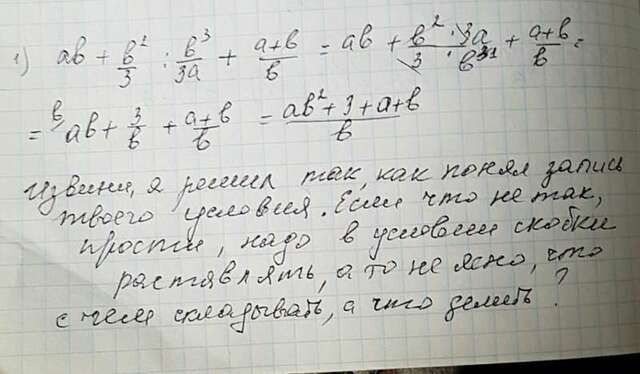 1) ab + b²/3 : b³/3a + a+b/b = ab + b² · 3a/3 · b³¹ + a+b/b =
= b/ ab + 3/b + a+b/b = ab² + 3 + a+b/b
Извини, я решил так, как понял запись
твоего условия. Если что не так,
прости, надо в условии скобки
раставлять, а то не ясно, что
с чем складывать, а что делить?